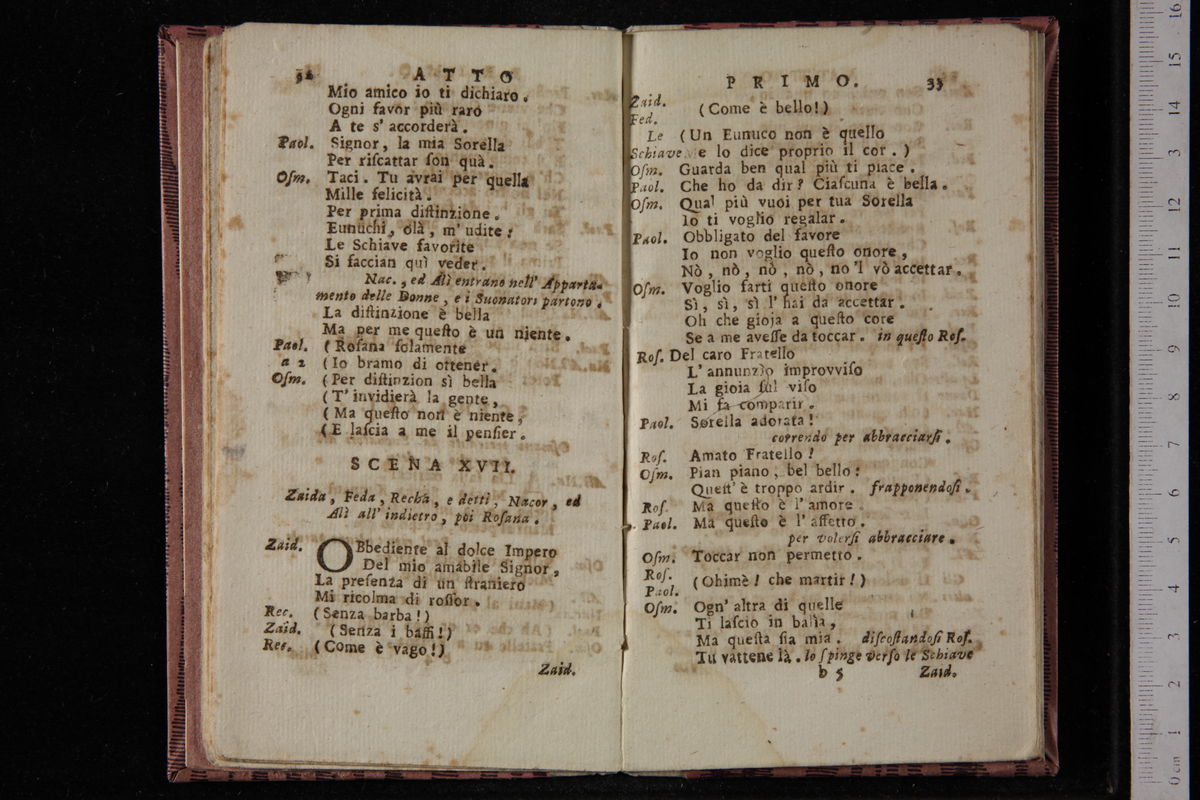 32 ATTO
Mio amico io ti dichiaro.
Ogni favor più raro
A te s' accorderà.
Paol. Signor, la mia Sorella
Per riſcattar ſon quà.
Oſm. Taci. Tu avrai per quella
Mille felicità.
Per prima diſtinzione.
Eunuchi, olà, m' udite:
Le Schiave favorite
Si faccian quì veder.
Nac., ed Alì entrano nell' Apparta-
mento delle Donne, e i Suonatori partono.
La diſtinzione è bella
Ma per me queſto è un niente.
Paol. (Roſana ſolamente
a 2 (Io bramo di ottener.
Oſm. (Per diſtinzion sì bella
(T' invidierà la gente,
(Ma queſto non è niente,
(E laſcia a me il penſier.
SCENA XVII.
Zaida, Feda, Recha, e detti, Nacor, ed
Alì all' indietro, poi Roſana.
Zaid. OBbediente al dolce Impero
Del mio amabile Signor,
La preſenza di un ſtraniero
Mi ricolma di roſſor.
Rec. (Senza barba!)
Zaid. (Senza i baffi!)
Rec. (Come è vago!)
Zaid.
PRIMO. 33
Zaid.
Fed. (Come è bello!)
Le (Un Eunuco non è quello
Schiave e lo dice proprio il cor.)
Oſm. Guarda ben qual più ti piace.
Paol. Che ho da dir? Ciaſcuna è bella.
Oſm. Qual più vuoi per tua Sorella
Io ti voglio regalar.
Paol. Obbligato del favore
Io non voglio queſto onore,
Nò, nò, nò, nò, no 'l vò accettar.
Oſm. Voglio farti queſto onore
Sì, sì, sì l' hai da accettar.
Oh che gioja a queſto core
Se a me aveſſe da toccar. in queſto Roſ.
Roſ. Del caro Fratello
L' annunzio improvviſo
La gioia ſul viſo
Mi fa comparir.
Paol. Sorella adorata!
correndo per abbracciarſi.
Roſ. Amato Fratello!
Oſm. Pian piano, bel bello:
Queſt' è troppo ardir. frapponendoſi.
Roſ. Ma queſto è l' amore.
Paol. Ma queſto è l' affetto.
per volerſi abbracciare.
Oſm. Toccar non permetto.
Roſ.
Paol. (Ohimè! che martir!)
Oſm. Ogn' altra di quelle
Ti laſcio in balìa,
Ma queſta ſia mia. diſcoſtandoſi Roſ.
Tu vattene là. lo ſpinge verſo le Schiave
b 5 Zaid.